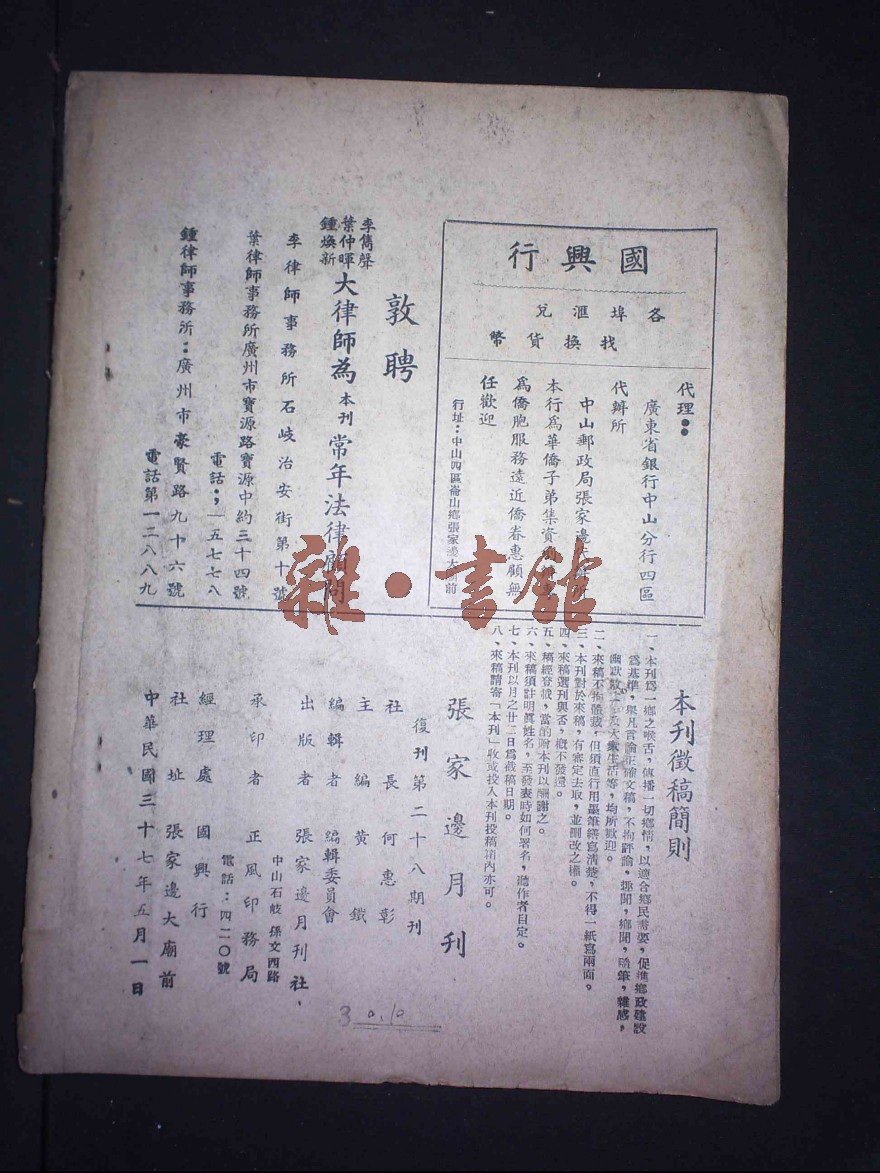 國興行
各埠滙兌
找換貨幣
代理：
廣東省銀行中山分行四區
代辦所
中山郵政局張家邊
本行爲華僑子弟集資
爲僑胞服務遠近僑眷惠顧無
任歡迎
行址：中山四區崙山鄉張家邊大廟前
敦聘
李雋聲
葉仲暉
鍾煥新
大律師為本刊常年法律顧問
李律師事務所石岐治安街第十號
葉律師事務所廣州市寶源路寶源中約三十四號
電話：一五七七八
鍾律師事務所：廣州市豪賢路九十六號
電話第一二八八九
本刊徵稿簡則
一、本刊爲一鄉之喉舌，傳播一切鄉情，以適合鄉民需要，促進鄉政建設
爲基準，舉凡言論正確文稿，不拘評論，趣聞，鄉聞，隨筆，雜感，
幽默散文及大衆生活等，均所歡迎。
二、來稿不拘體裁，但須直行用墨筆繕寫清楚，不得一紙寫兩面。
三、本刊對於來稿，有審定去取，並刪改之權。
四、來稿選刊與否，概不發還。
五、稿經登載，當酌贈本刊以酬謝之。
六、來稿須註明眞姓名，至發表時如何署名，聽作者自定。
七、本刊以月之廿二日爲截稿日期。
八、來稿請寄「本刊」收或投入本刊投稿箱內亦可。
張家邊月刊
復刊第二十八期刊
社長 何惠彰
主編 黃鐵
編輯者 編輯委員會
出版者 張家邊月刊社，
中山石岐孫文西路
承印者 正風印務局
電話：四二〇號
經理處 國興行
社址 張家邊大廟前
中華民國三十七年五月一日
3 0.10
雜·書館